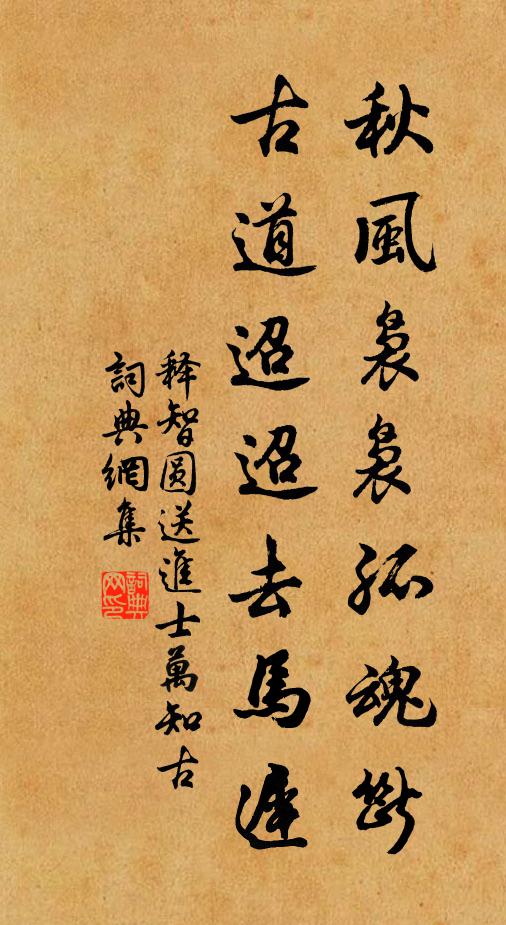 秋風裊裊孤魂斷
古道迢迢去馬遲
释智圆送進士萬知古
詞典網集
詞典网印